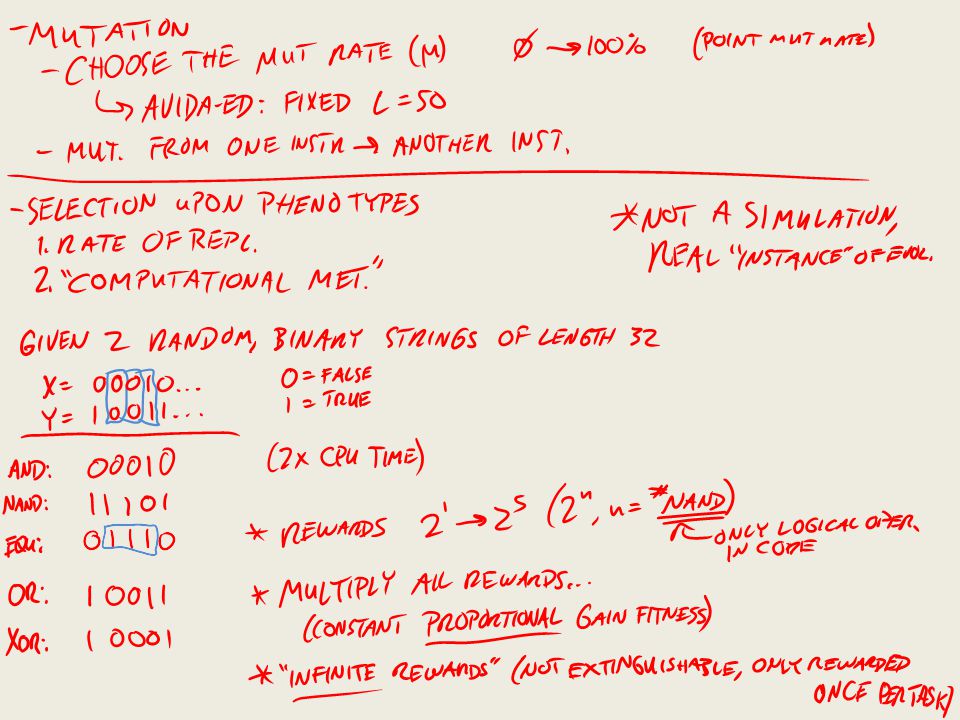 - MUTATION
- CHOOSE THE MUT RATE (μ) Ø → 100% (POINT MUT RATE)
↳ AVIDA-ED: FIXED L = 50
- MUT. FROM ONE INSTR → ANOTHER INST.
- SELECTION UPON PHENOTYPES
1. RATE OF REPL.
2. "COMPUTATIONAL MET."
* NOT A SIMULATION,
REAL "INSTANCE" OF EVOL.
GIVEN 2 RANDOM, BINARY STRINGS OF LENGTH 32
X = 00010... 0 = FALSE
Y = 10011... 1 = TRUE
AND: 00010 (2X CPU TIME)
NAND: 11101
EQU: 01110
OR: 10011
XOR: 10001
* REWARDS 2^1 → 2^5 (2^n, n = #NAND)
ONLY LOGICAL OPER.
IN CODE
* MULTIPLY ALL REWARDS...
(CONSTANT PROPORTIONAL GAIN FITNESS)
* "INFINITE REWARDS" (NOT EXTINGUISHABLE, ONLY REWARDED
ONCE PER TASK)